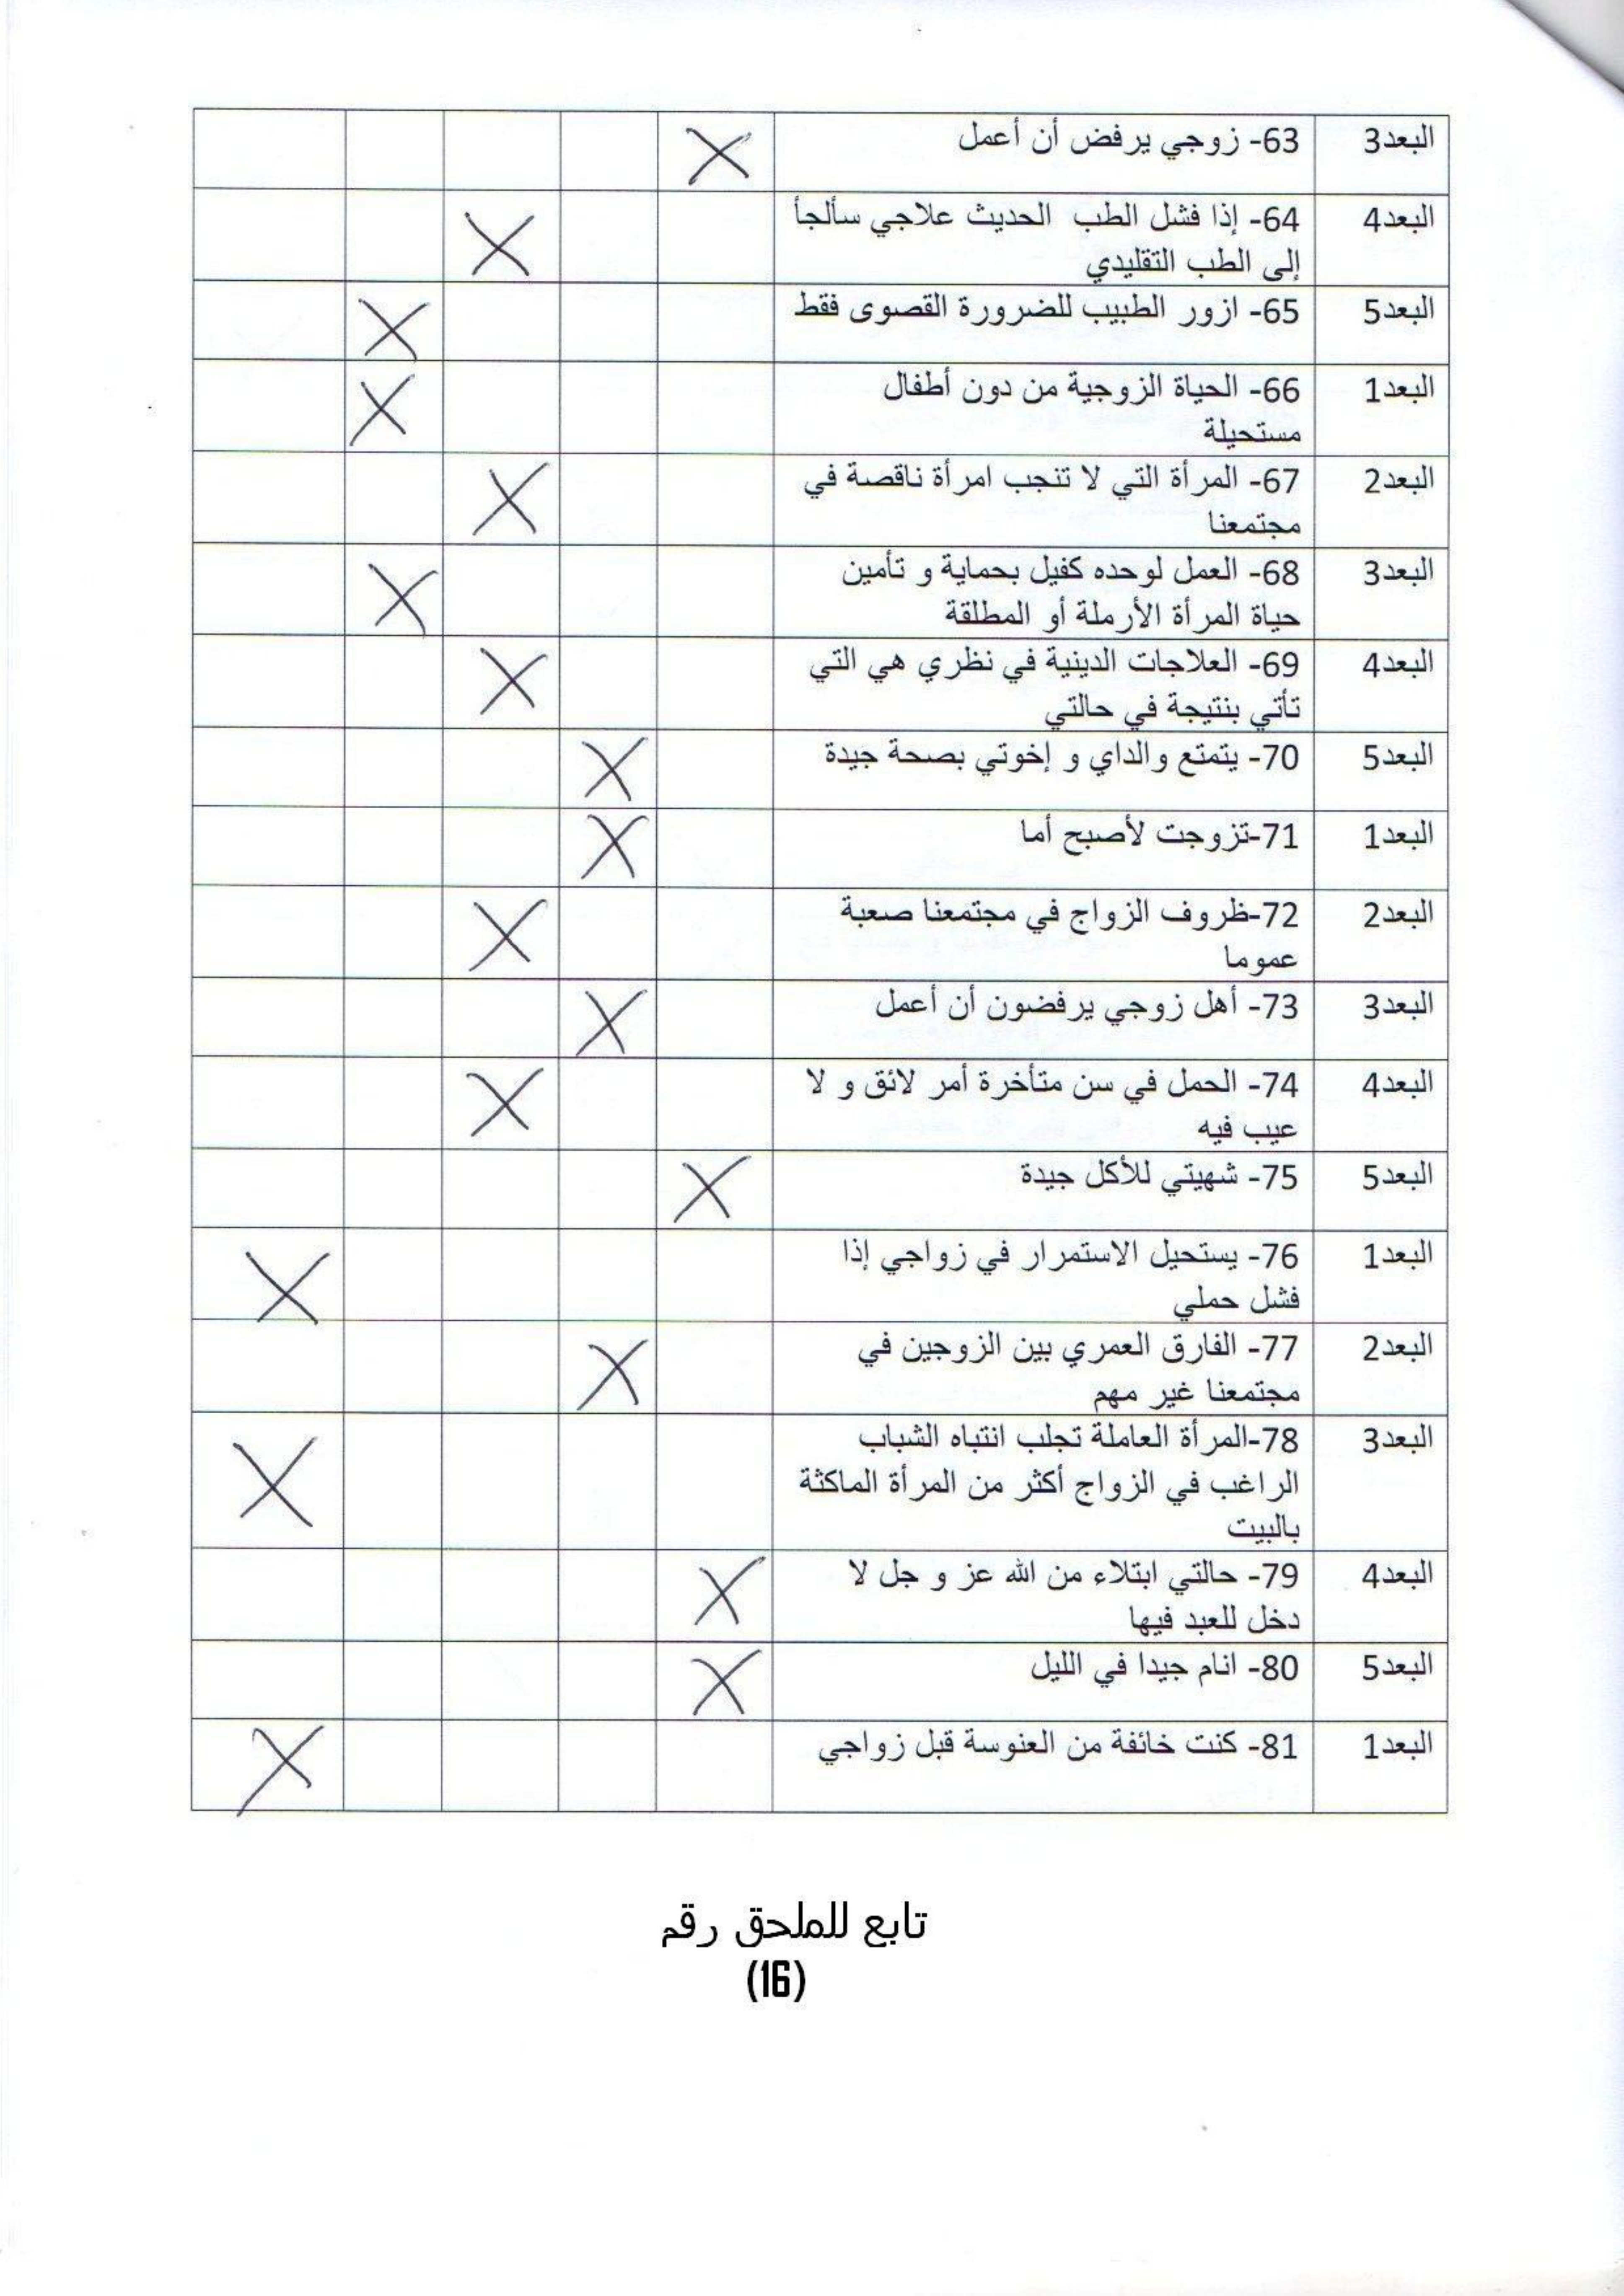 البعد3 63- زوجي يرفض أن أعمل X
البعد4 64- إذا فشل الطب الحديث علاجي سألجأ X
إلى الطب التقليدي
البعد5 65- ازور الطبيب للضرورة القصوى فقط X
البعد1 66- الحياة الزوجية من دون أطفال X
مستحيلة
البعد2 67- المرأة التي لا تنجب امرأة ناقصة في X
مجتمعنا
البعد3 68- العمل لوحده كفيل بحماية و تأمين X
حياة المرأة الأرملة أو المطلقة
البعد4 69- العلاجات الدينية في نظري هي التي X
تأتي بنتيجة في حالتي
البعد5 70- يتمتع والداي و إخوتي بصحة جيدة X
البعد1 71-تزوجت لأصبح أما X
البعد2 72-ظروف الزواج في مجتمعنا صعبة X
عموما
البعد3 73- أهل زوجي يرفضون أن أعمل X
البعد4 74- الحمل في سن متأخرة أمر لائق و لا X
عيب فيه
البعد5 75- شهيتي للأكل جيدة X
البعد1 76- يستحيل الاستمرار في زواجي إذا X
فشل حملي
البعد2 77- الفارق العمري بين الزوجين في X
مجتمعنا غير مهم
البعد3 78-المرأة العاملة تجلب انتباه الشباب X
الراغب في الزواج أكثر من المرأة الماكثة
بالبيت
البعد4 79- حالتي ابتلاء من الله عز و جل لا X
دخل للعبد فيها
البعد5 80- انام جيدا في الليل X
البعد1 81- كنت خائفة من العنوسة قبل زواجي X
تابع للملحق رقم
(16)